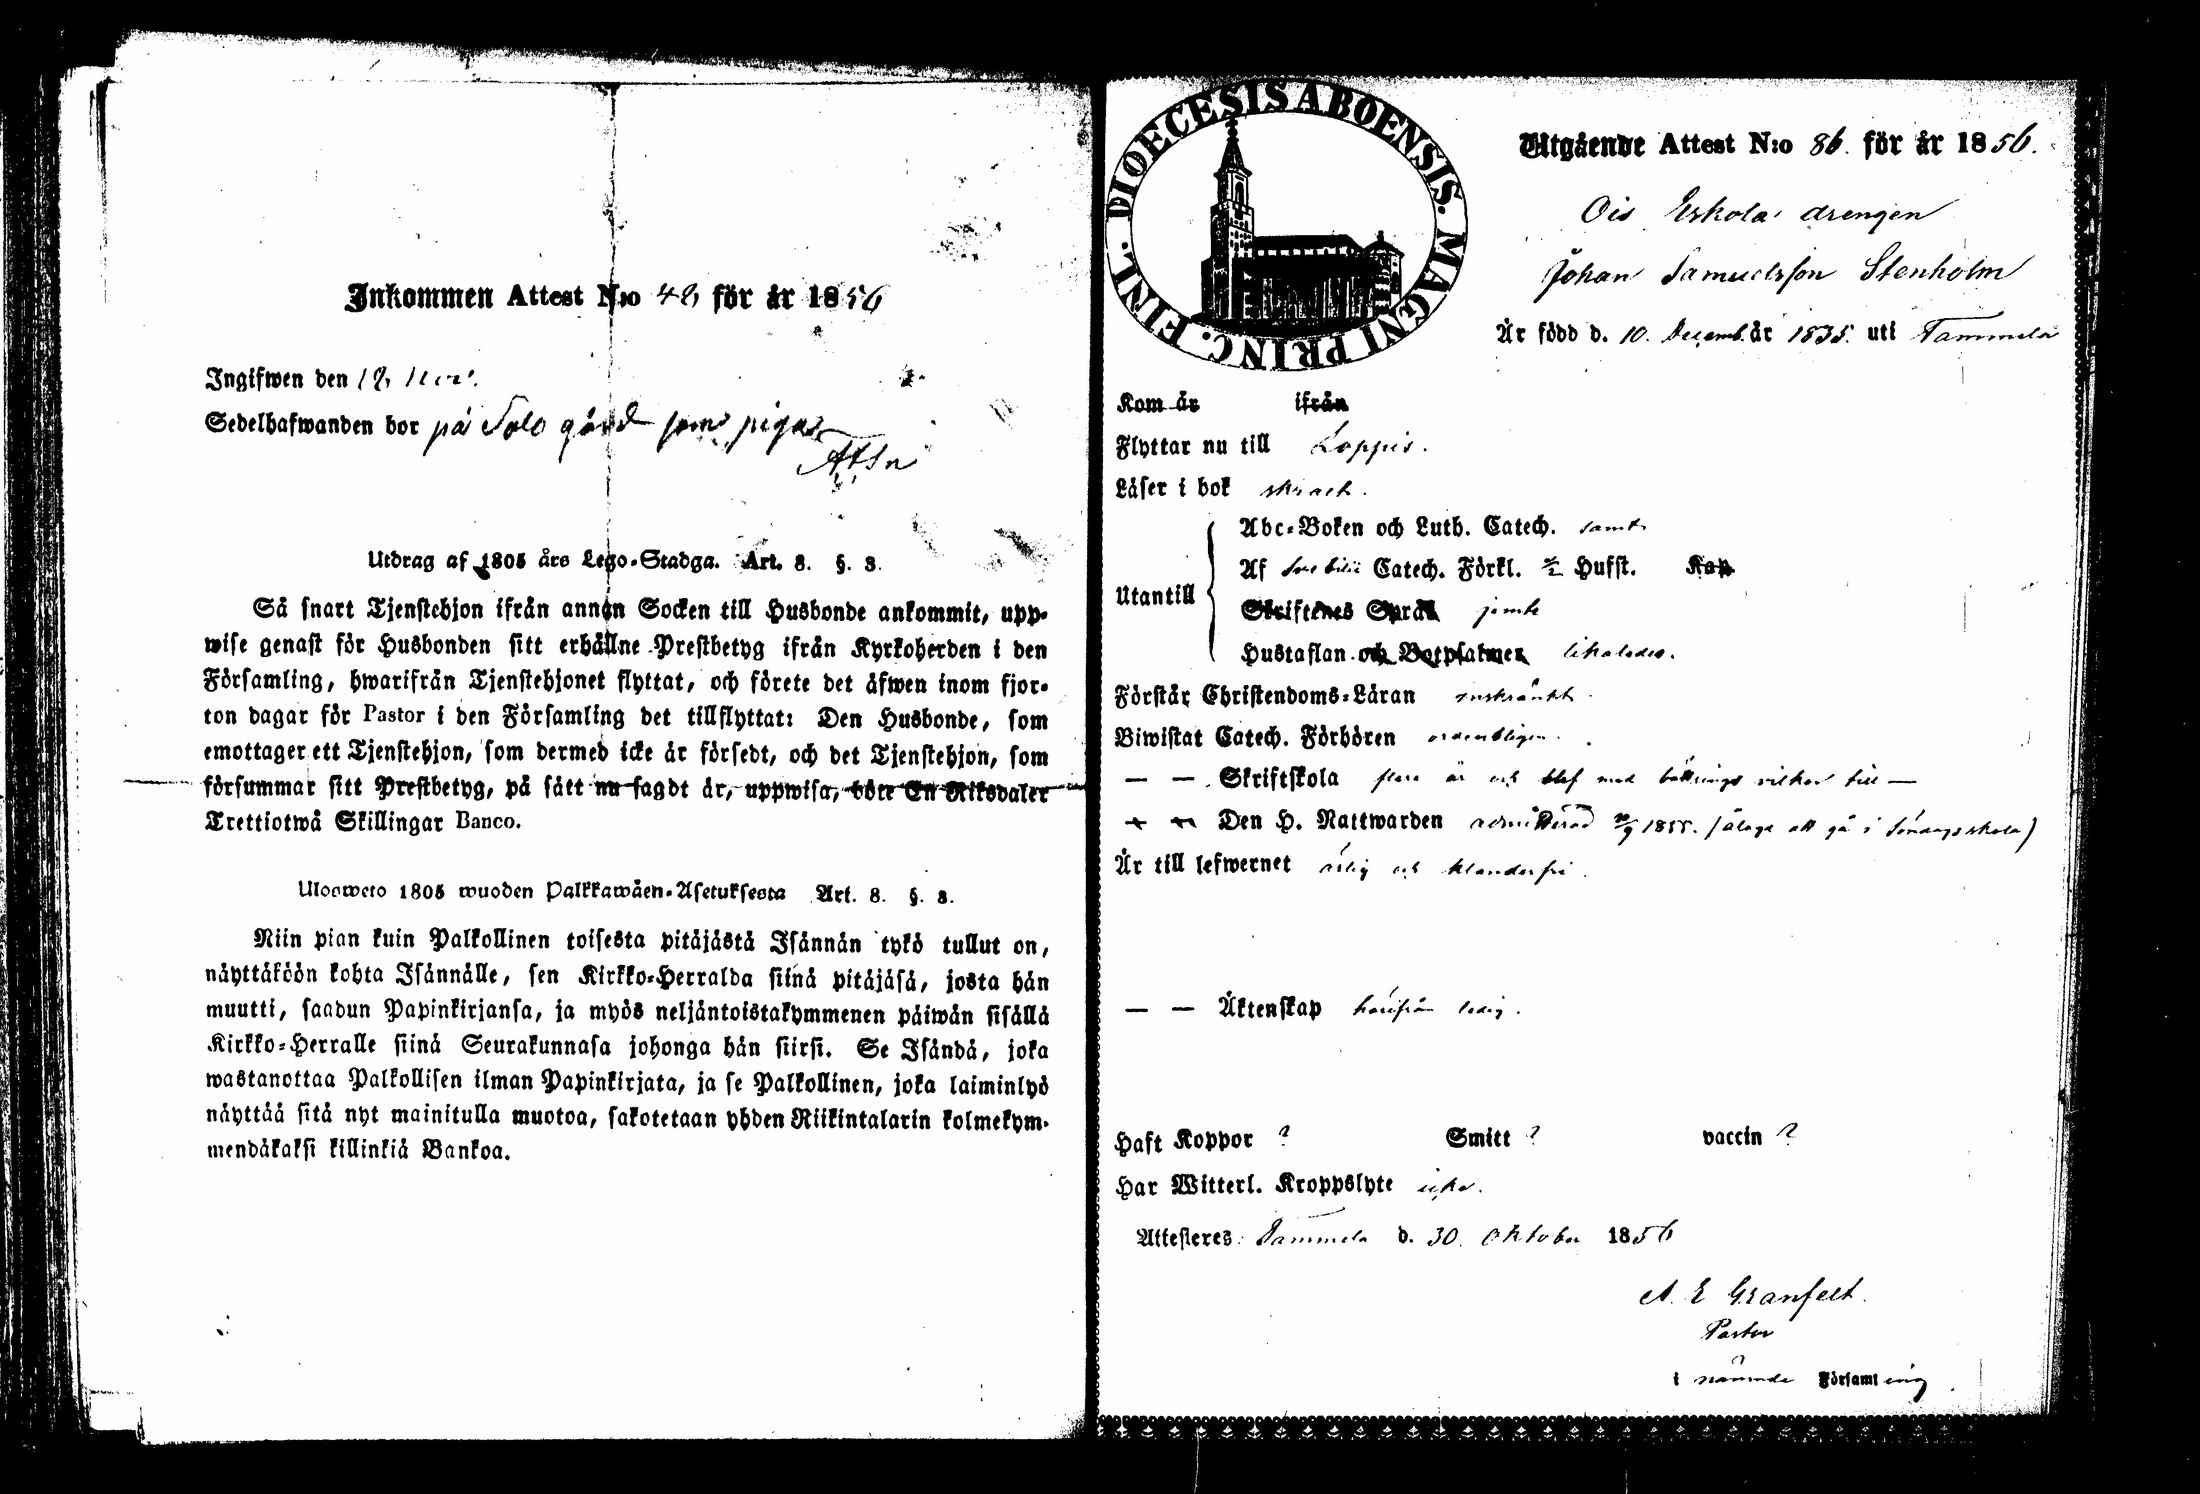 Inkommen Attest N:o 42, för år 1856
Ingifwen den 12 Nov.
Sedelhafwanden bor på Salo gård som piga
Utdrag af 1805 års Lego-Stadga. Art. 8. §. 3.
Så snart Tjenstehjon ifrån annan Socken till Husbonde ankommit, upp-
wise genast för Husbonden sitt erhållne Prestbetyg ifrån Kyrkoherden i den
Församling, hwarifrån Tjenstehjonet flyttat, och förete det äfwen inom fjor-
ton dagar för Pastor i den Församling det tillflyttat: Den Husbonde, som
emottager ett Tjenstehjon, som dermed icke är försedt, och det Tjenstehjon, som
försummar sitt Prestbetyg, på sätt nu sagdt är, uppwisa, böte En Riksdaler
Trettiotwå Skillingar Banco.
Ulosweto 1805 wuoden Palkkawäen-Asetuksesta Art. 8. §. 3.
Niin pian kuin Palkollinen toisesta pitäjästä Isännän tykö tullut on,
näyttäköön kohta Isännälle, sen Kirkko-Herralda siinä pitäjäsä, josta hän
muutti, saadun Papinkirjansa, ja myös neljäntoistakymmenen päiwän sisällä
Kirkko-Herralle siinä Seurakunnasa johonga hän siirsi. Se Isändä, joka
wastanottaa Palkollisen ilman Papinkirjata, ja se Palkollinen, joka laiminlyö
näyttää sitä nyt mainitulla muotoa, sakotetaan yhden Riikintalarin kolmekym-
mendäkaksi killinkiä Bankoa.
DIOECESIS ABOENSIS. MAGNI PRINC. FINL.
Utgående Attest N:o 86. för år 1856.
Ois Eskola drengen
Johan Samuelsson Stenholm
Är född d. 10. Decemb. år 1835. uti Tammela
Kom år ifrån
Flyttar nu till Loppis.
Läser i bok svagt.
Utantill
Abc-Boken och Luth. Catech. samt
Af Svebilii Catech. Förkl. 1/2 Hufst. Kap
Skriftenes Språk jemte
Hustaflan och Botpsalmer likaledes.
Förstår Christendoms-Läran inskränkt.
Biwistat Catech. Förhören ordentligen.
— — Skriftskola flere år och blef med bättrings vilkor till —
— — Den H. Nattwarden admitterad 1855. (ålagd att gå i Söndagsskola)
Är till lefwernet ärlig och klanderfri.
— — Äktenskap härifrån ledig.
Haft Koppor ? Smitt ? vaccin ?
Har Witterl. Kroppslyte icke.
Attesteres Tammela d. 30. Oktober 1856
A. E Granfelt.
Pastor
i nämnde Församling